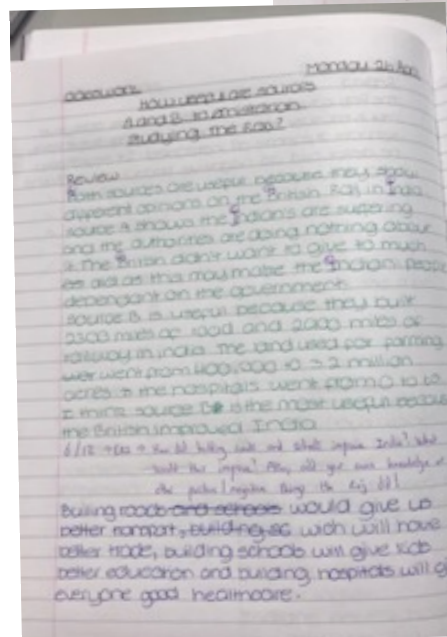 Monday 24 Apr
classwork
How useful are sources
A and B to a historian
studying the Raj?
Review
Both sources are useful because they show
different opinions on the British Raj in India
source A shows the Indians are suffering
and the authorities are doing nothing about
it. The British didn't want to give to much
aid as this may make the Indian people
dependant on the government.
Source B is useful because they built
2300 miles of road and 2000 miles of
railway in india. The land used for farming
went from 400,000 to 3.2 million
acres + the hospitals went from 0 to 10
I think source B is the most useful because
the British improved India
6/12 How did building roads and schools improve India? What
would this improve? Also, add your own knowledge of
the positive/negative things the Raj did!
Builing roads and schools would give us
better tranport, building sc wich will have
better trade, building schools will give kids
better education and building hospitals will
everyone good healthcare.